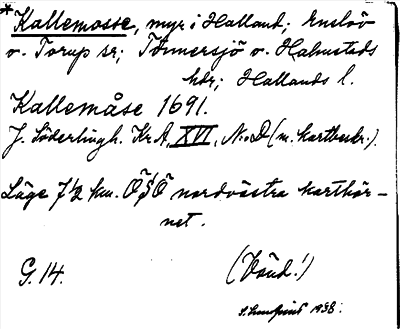 *Kallemosse, myr i Halland; Enslöv
o. Torup sr; Tönnersjö o. Halmstads
hdr; Hallands l.
Kallemåse 1691.
J. Söderlingh. KrA, XVI, N:o D (m. kartbeskr.).
Läge 7 1/2 km. Ö S Ö nordvästra karthör-
net.
G. 14. (Vänd!)
1938.